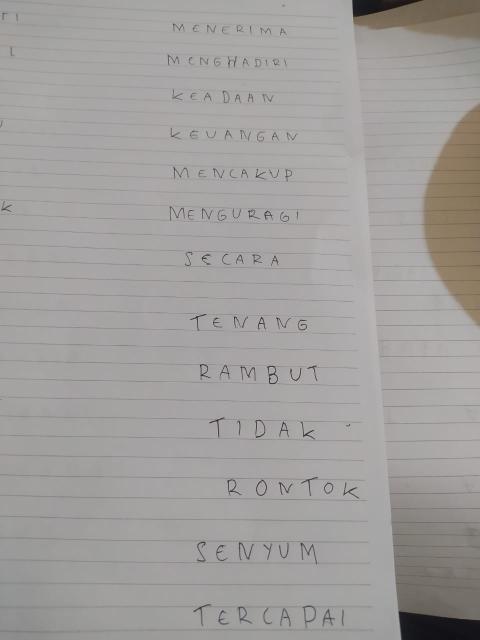 MENERIMA
MENGHADIRI
KEADAAN
KEUANGAN
MENCAKUP
MENGURAGI
SECARA
TENANG
RAMBUT
TIDAK
RONTOK
SENYUM
TERCAPAI